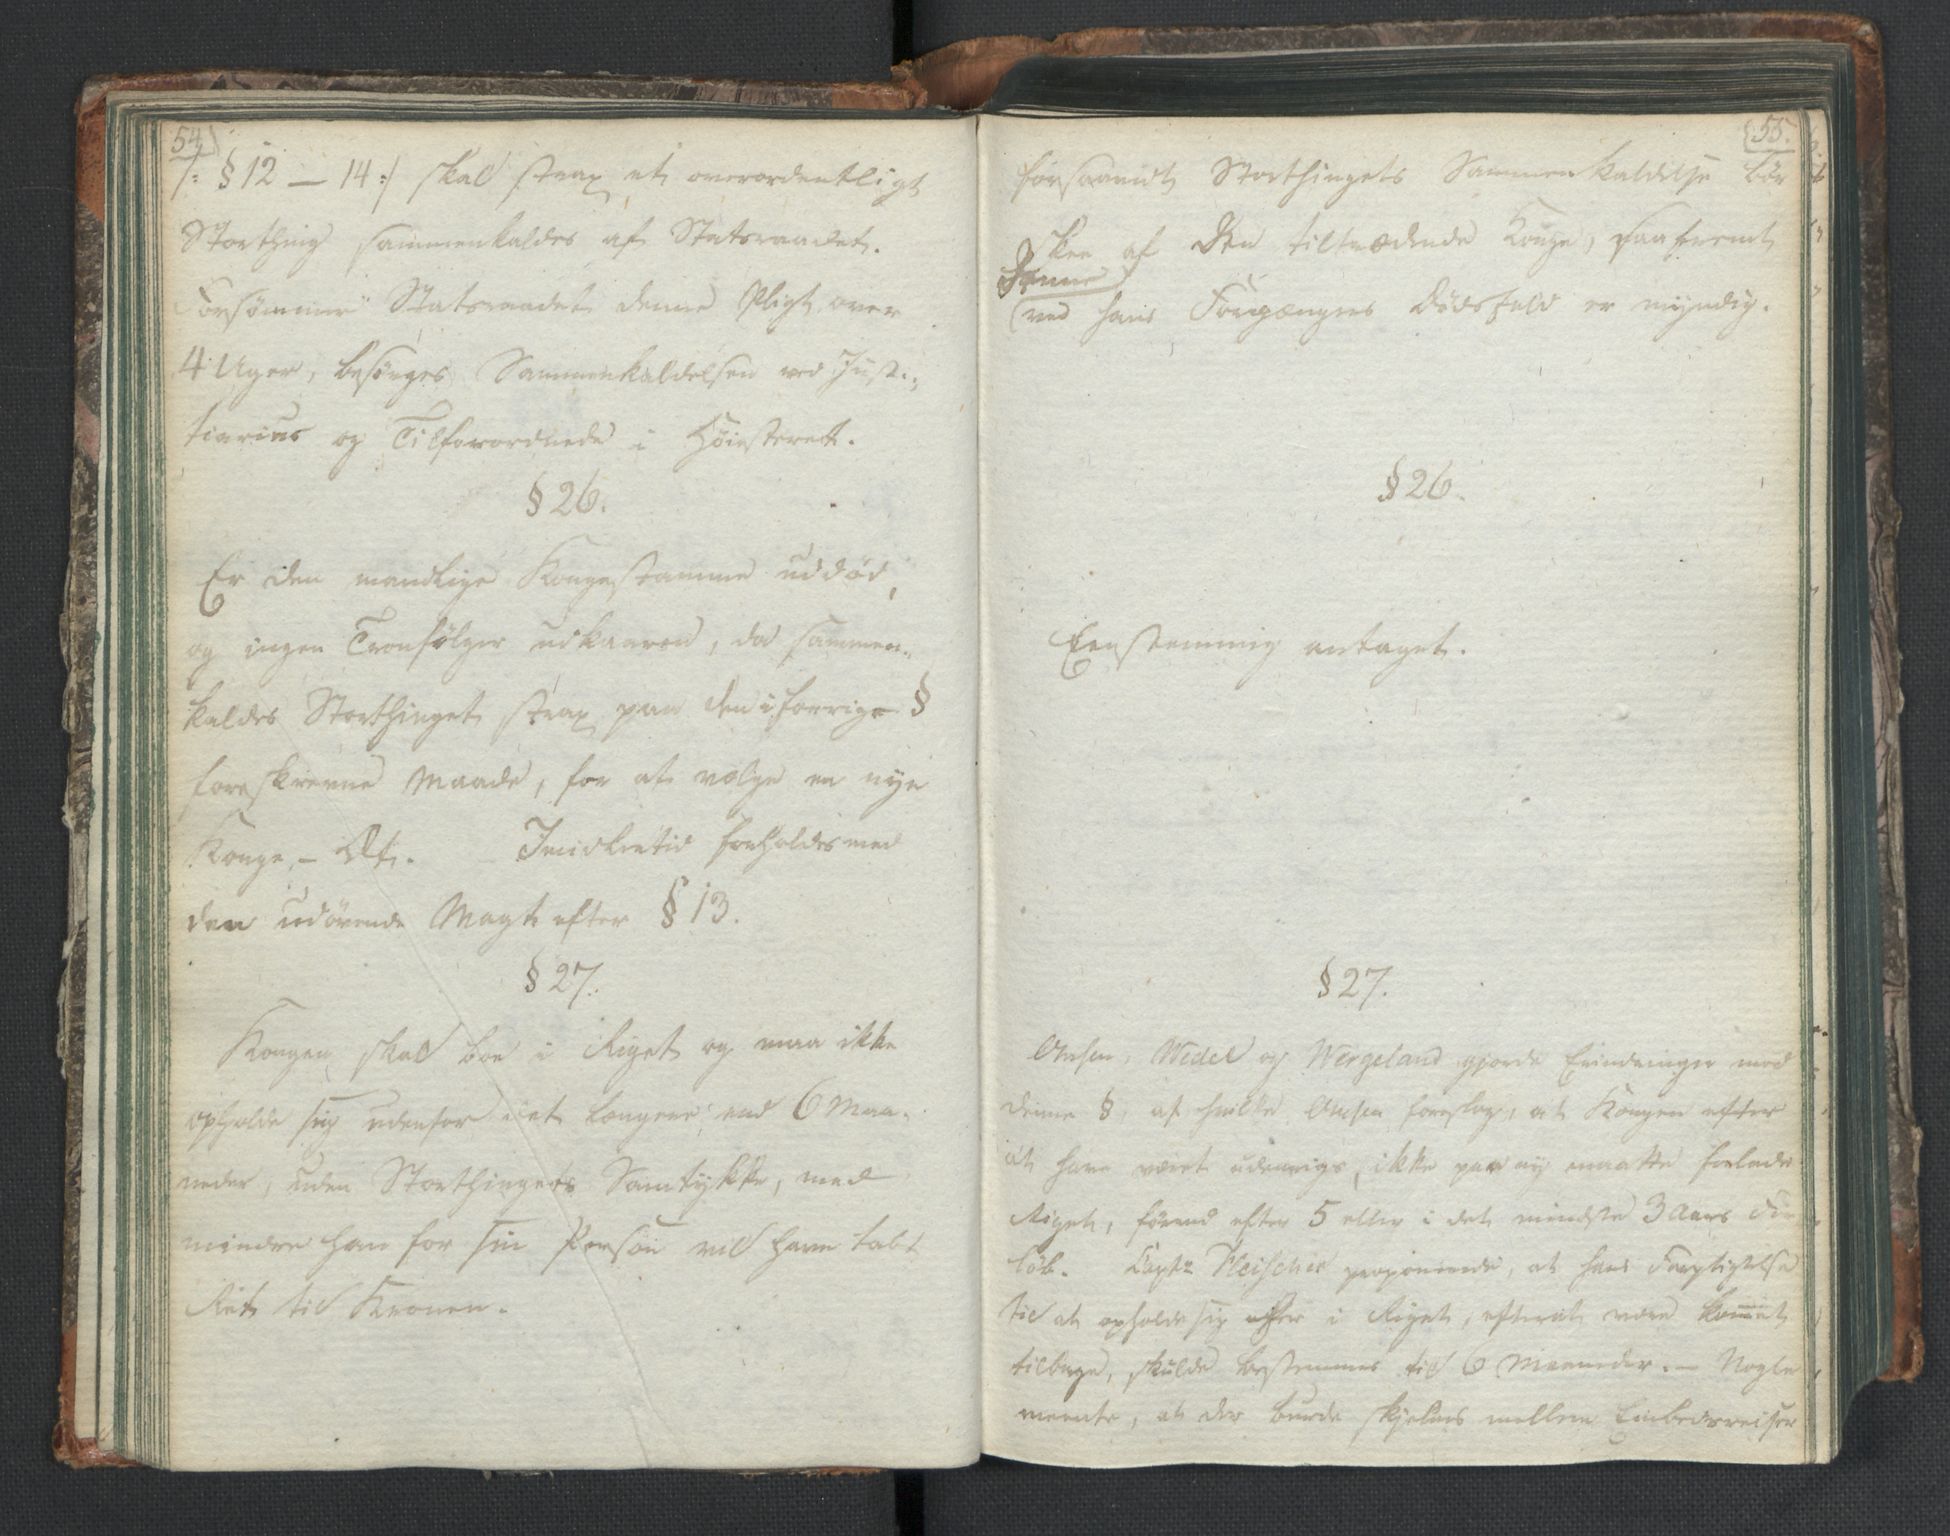 54
/: § 12 — 14 :/ skal strax et overordentligt
Storthing sammenkaldes af Statsraadet.
Forsømmer Statsraadet denne Pligt over
4 Uger, besørges Sammenkaldelsen ved Justi-
tiarius og Tilforordnede i Høiesteret.
§ 26.
Er den mandlige Kongestamme uddød,
og ingen Tronfølger udkaaren, da sammen-
kaldes Storthinget strax paa den i forrige §
foreskrevne Maade, for at vælge en nye
Konge-Æt. Imidlertid forholdes med
den udøvende Magt efter § 13.
§ 27.
Kongen skal boe i Riget og maa ikke
opholde sig udenfor det længere end 6 Maa-
neder, uden Storthingets Samtykke, med
mindre han for sin Person vil have tabt
Ret til Kronen.
55.
forsaavidt Storthingets Sammenkaldelse bør
skee af den tiltrædende Konge, saafremt
denne
ved hans Forgængers Dødsfald er myndig.
§ 26.
Eenstemmig antaget.
§ 27.
Omsen, Wedel og Wergeland gjorde Erindringer mod
denne §, af hvilke Omsen foreslog, at Kongen efter
at have været udenrigs, ikke paa ny maatte forlade
Riget, førend efter 5 eller i det mindste 3 Aars For
løb. Capt: Fleischer proponerede, at hans Forpligtelse
til at opholde sig i Riget, efterat være kommet
tilbage, skulde bestemmes til 6 Maaneder. — Nogle
meente, at der burde skjelnes mellem Embedsreiser